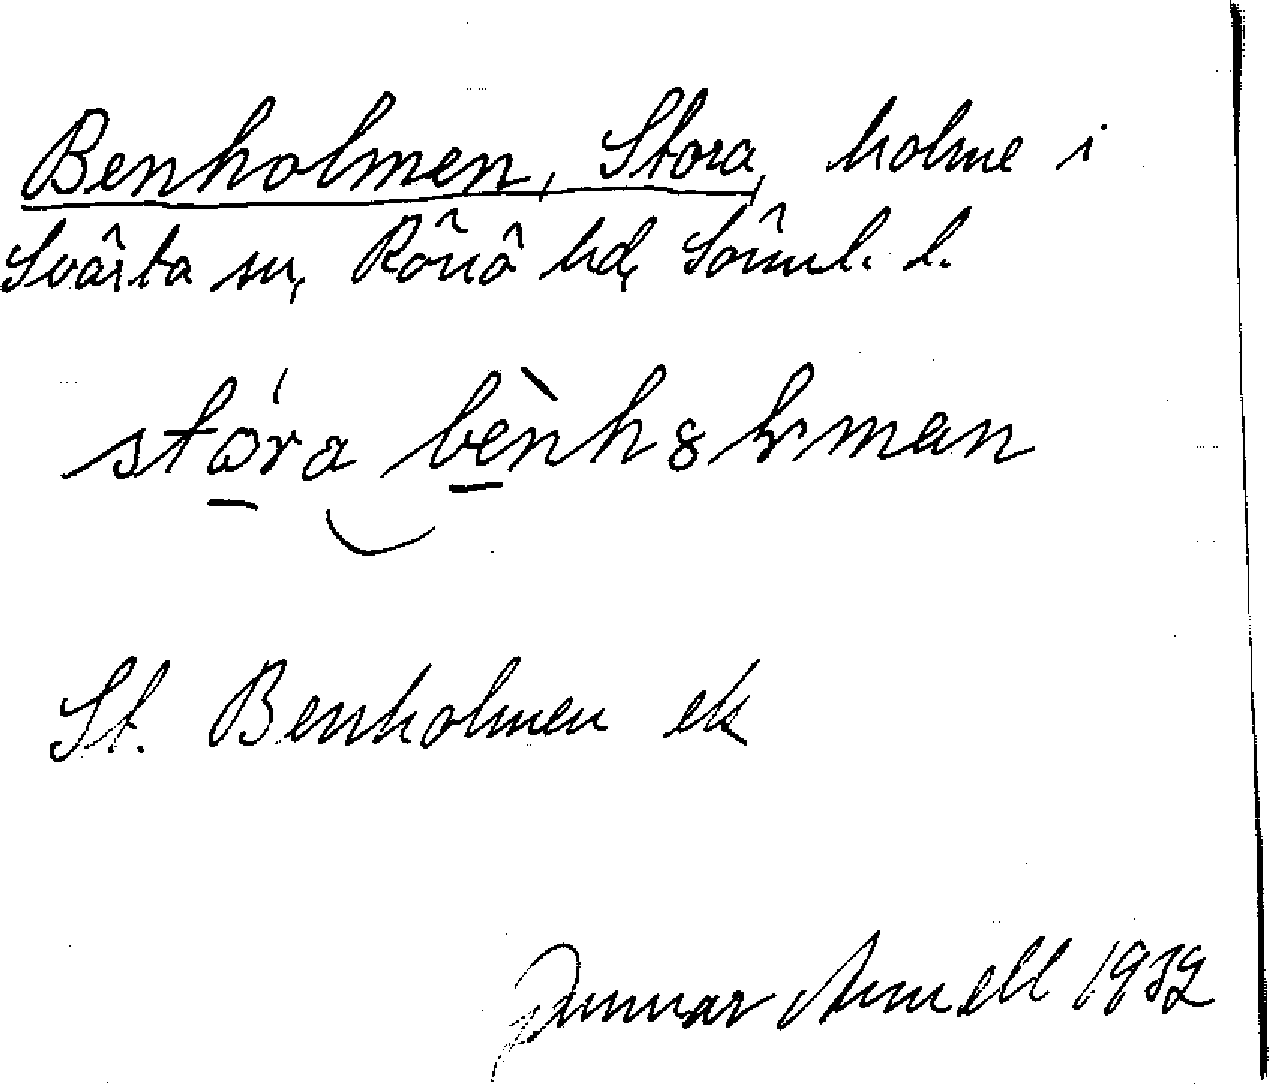 Benholmen, Stora, holme i
Svärta sn, Rönö hd, Sörml. l.
stora benhȣlman
St. Benholmen ek
Gunnar 1932